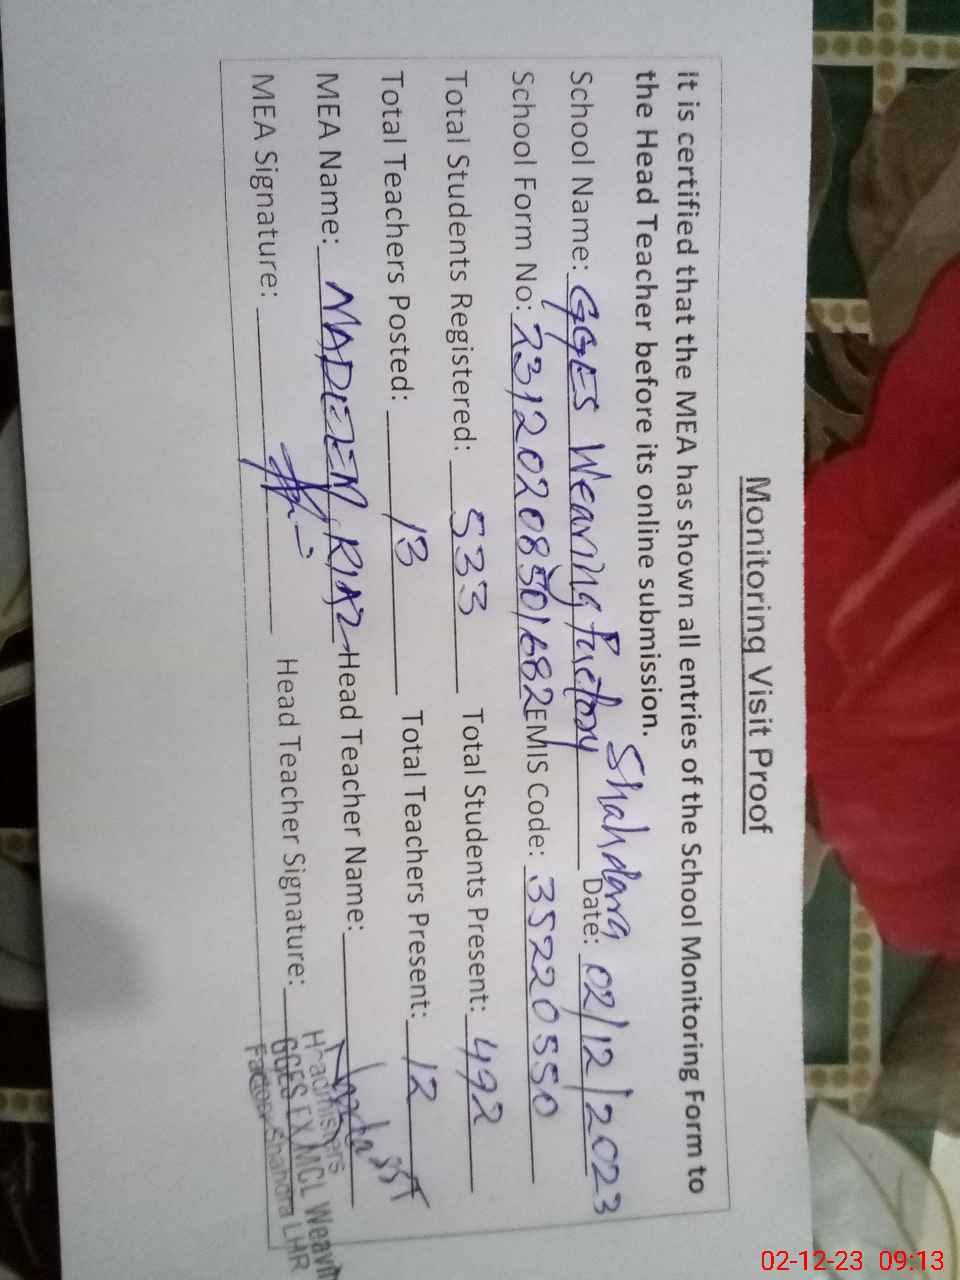 Monitoring Visit Proof
It is certified that the MEA has shown all entries of the School Monitoring Form to
the Head Teacher before its online submission.
School Name: GGES Weaving Factory Shahdara Date: 02/12/2023
School Form No: 23120208501682 EMIS Code: 35220550
Total Students Registered: 533 Total Students Present: 492
Total Teachers Posted: 13 Total Teachers Present: 12
MEA Name: NADEEM RIAZ Head Teacher Name:
MEA Signature: Head Teacher Signature:
Headmistress
GGES EX MCL Weavin
Factory Shahdra LHR
02-12-23 09:13